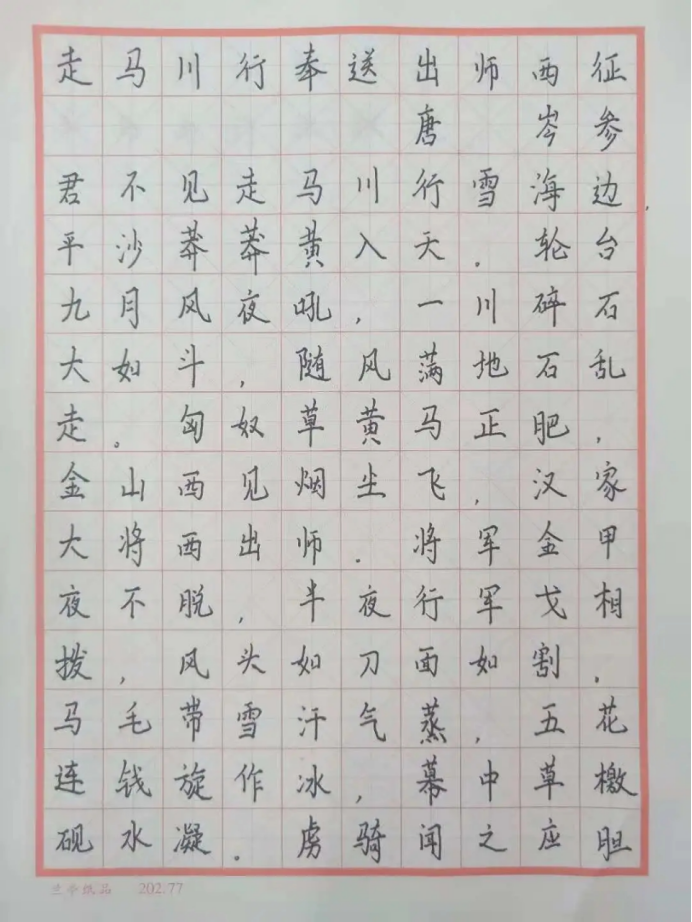 走马川行奉送出师西征
唐 岑参
君不见走马川行雪海边,
平沙莽莽黄入天。轮台
九月风夜吼,一川碎石
大如斗,随风满地石乱
走。匈奴草黄马正肥,
金山西见烟尘飞,汉家
大将西出师.将军金甲
夜不脱,半夜行军戈相
拨,风头如刀面如割.
马毛带雪汗气蒸,五花
连钱旋作冰,幕中草檄
砚水凝.虏骑闻之应胆
兰亭纸品 202.77